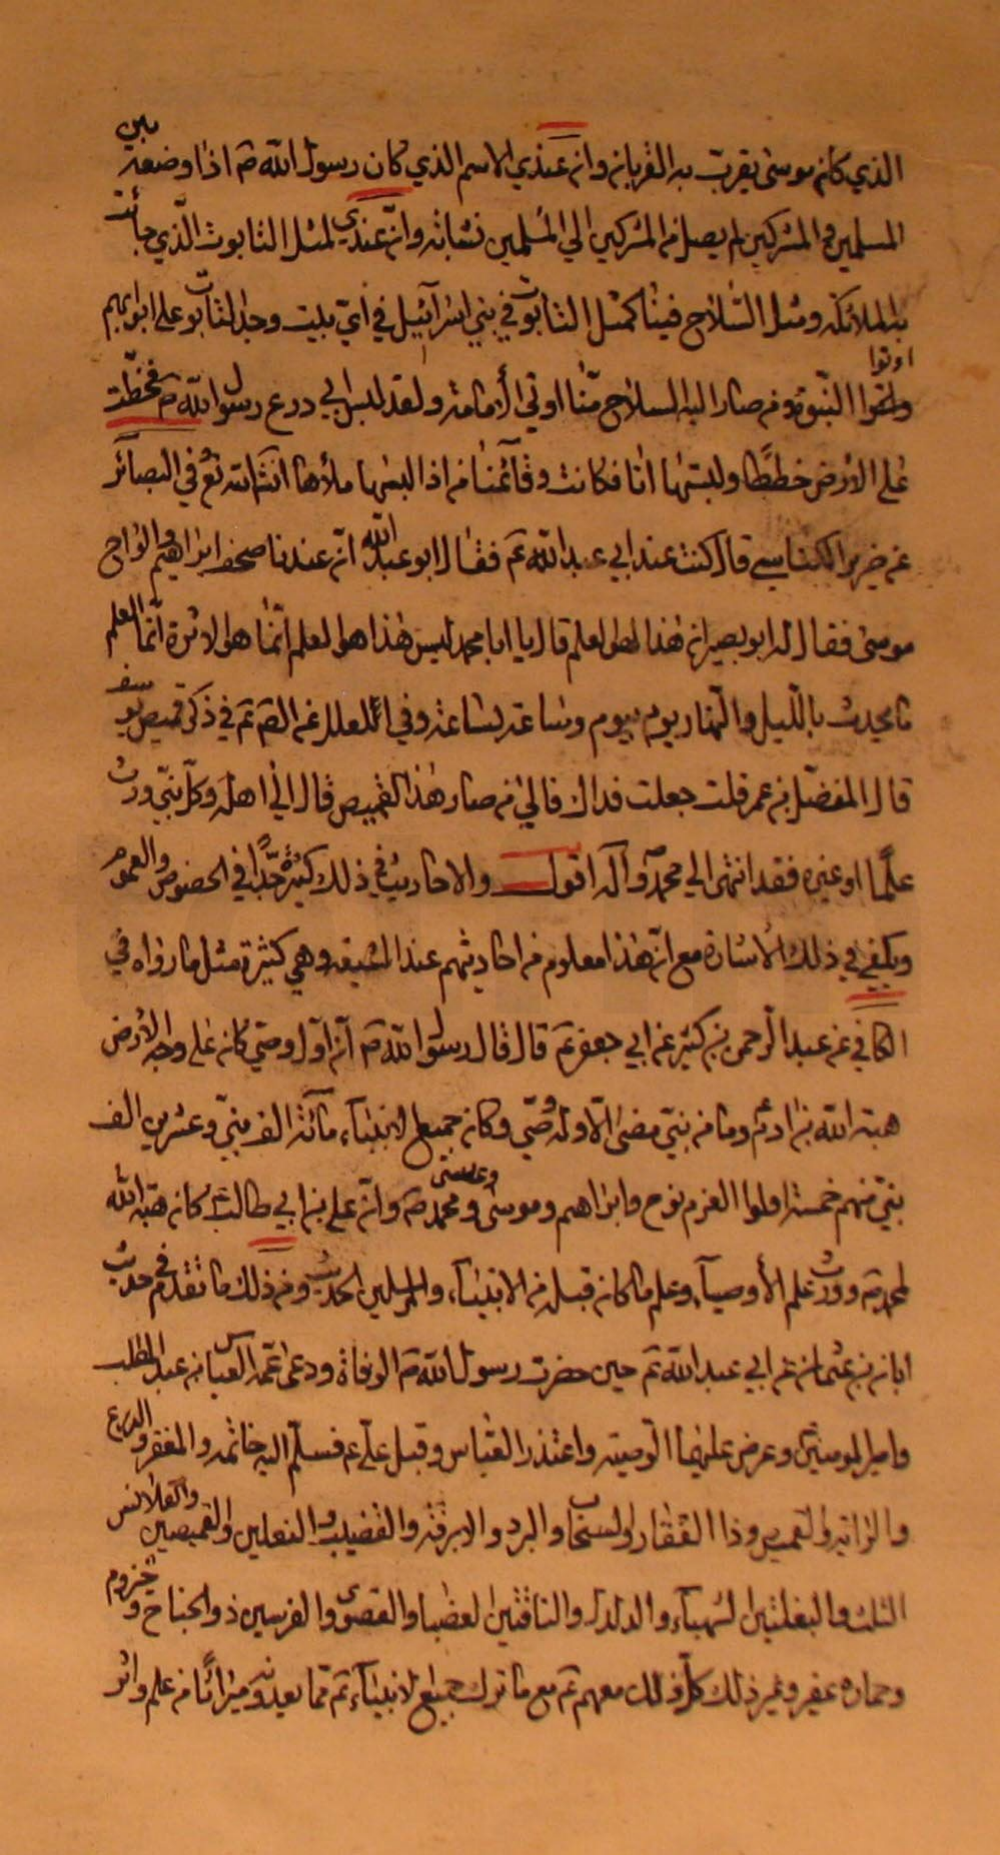 الذي كان موسى يقرب به القربان وان عندي الاسم الذي كان رسول الله ص اذا وضعه بين
المسلمين والمشركين لم يصل من المشركين الي المسلمين نشابة وان عندي لمثل التابوت الذي جائت
به الملائكة ومثل السلاح فينا كمثل التابوت في بني اسرائيل في اي بيت وجد التابوت على ابوابهم
اوتوا النبوة ومن صار اليه السلاح منا اوتي الامامة ولقد لبس ابي درع رسول الله ص فخطت
على الارض خططا ولبستها انا فكانت وقائمنا من اذا لبسها ملأها انشاء الله تع في البصآئر
عن ضريس الكناسي قال كنت عند ابي عبد الله ع فقال ابو عبد الله ان عندنا صحف ابراهيم والواح
موسى فقال له ابو بصير ان هذا لهو العلم قال يا ابا محمد ليس هذا هو العلم انما هو الاثرة انما العلم
ما يحدث بالليل والنهار يوم بيوم وساعة بساعة وفي العلل عن الصم ع في ذكر قميص يوسف
قال المفضل بن عمر قلت جعلت فداك فالي من صار هذا القميص قال الي اهله وكل نبي ورث
علما او غيره فقد انتهى الي محمد وآله اقول والاحاديث في ذلك كثيرة جدا في الخصوص والعموم
ويكفي في ذلك الاشارة مع ان هذا معلوم من احاديثهم عند الشيعة وهي كثيرة مثل ما رواه في
الكافي عن عبد الرحمن بن كثير عن ابي جعفر ع قال قال رسول الله ص ان اول وصي كان على وجه الارض
هبة الله بن ادم وما من نبي مضى الا وله وصي وكان جميع الانبيآء مائة الف نبي وعشرين الف
نبي منهم خمسة اولوا العزم نوح وابراهيم وموسى وعيسى ومحمد ص وان علي بن ابي طالب كان هبة الله
لمحمد ص وورث علم الأوصيآء وعلم ما كان قبله من الانبيآء والمرسلين الحديث ومن ذلك ما تقدم في حديث
ابان بن عثمان عن ابي عبد الله ع حين حضرت رسول الله ص الوفاة ودعى عمه العباس بن عبد المطلب
وامير المومنين وعرض عليهما الوصية واعتذر العباس وقبل علي ع فسلم اليه خاتمه والمغفر والدرع
والراية والقميص وذا الفقار والسحاب والبرد والابرقة والقضيب والنعلين والقميصين والقلانس
الثلث والبغلتين الشهبآء والدلدل والناقتين العضبا والقصوى والفرسين ذو الجناح وحيزوم
وحماره عفير وغير ذلك كل ذلك معهم ع مع ما ترك جميع الانبيآء ع مما يعدونه ميراثا من علم واثر